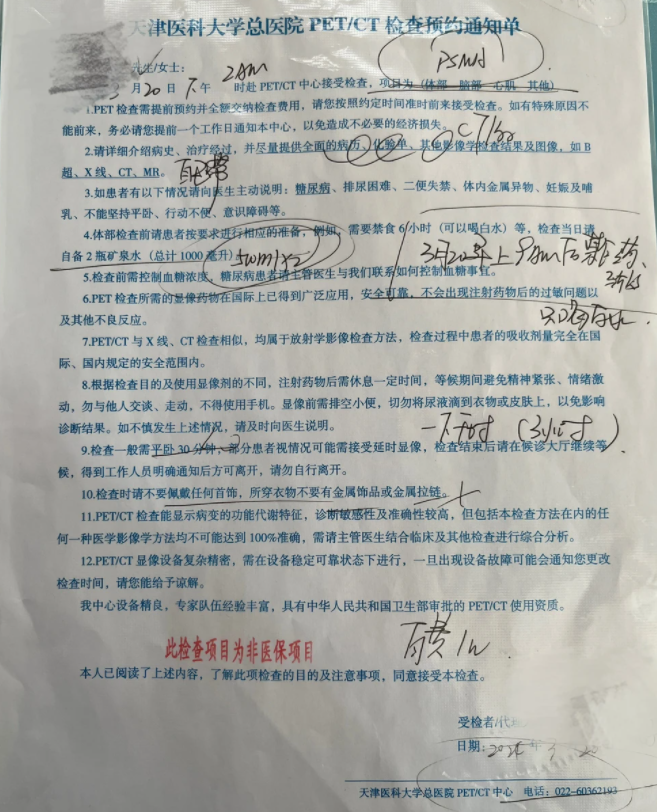 天津医科大学总医院 PET/CT 检查预约通知单
PSMA
先生/女士:
3月20日下午 2 时赴 PET/CT 中心接受检查,项目为(体部 脑部 心肌 其他)
1.PET 检查需提前预约并全额交纳检查费用,请您按照约定时间准时前来接受检查。如有特殊原因不
能前来,务必请您提前一个工作日通知本中心,以免造成不必要的经济损失。
2.请详细介绍病史、治疗经过,并尽量提供全面的病历、化验单、其他影像学检查结果及图像,如 B
超、X 线、CT、MR。
自费
3.如患者有以下情况请向医生主动说明:糖尿病、排尿困难、二便失禁、体内金属异物、妊娠及哺
乳、不能坚持平卧、行动不便、意识障碍等。
4.体部检查前请患者按要求进行相应的准备,例如,需要禁食 6 小时(可以喝白水)等,检查当日请
自备 2 瓶矿泉水(总计 1000 毫升)
500ml×2
5.检查前需控制血糖浓度,糖尿病患者请主管医生与我们联系如何控制血糖事宜。
6.PET 检查所需的显像药物在国际上已得到广泛应用,安全可靠,不会出现注射药物后的过敏问题以
及其他不良反应。
7.PET/CT 与 X 线、CT 检查相似,均属于放射学影像检查方法,检查过程中患者的吸收剂量完全在国
际、国内规定的安全范围内。
8.根据检查目的及使用显像剂的不同,注射药物后需休息一定时间,等候期间避免精神紧张、情绪激
动,勿与他人交谈、走动,不得使用手机。显像前需排空小便,切勿将尿液滴到衣物或皮肤上,以免影响
诊断结果。如不慎发生上述情况,请及时向医生说明。
(3小时)
9.检查一般需平卧 30 分钟,部分患者视情况可能需接受延时显像,检查结束后请在候诊大厅继续等
候,得到工作人员明确通知后方可离开,请勿自行离开。
10.检查时请不要佩戴任何首饰,所穿衣物不要有金属饰品或金属拉链。
11.PET/CT 检查能显示病变的功能代谢特征,诊断敏感性及准确性较高,但包括本检查方法在内的任
何一种医学影像学方法均不可能达到 100%准确,需请主管医生结合临床及其他检查进行综合分析。
12.PET/CT 显像设备复杂精密,需在设备稳定可靠状态下进行,一旦出现设备故障可能会通知您更改
检查时间,请您能给予谅解。
我中心设备精良,专家队伍经验丰富,具有中华人民共和国卫生部审批的 PET/CT 使用资质。
此检查项目为非医保项目
自费1w
本人已阅读了上述内容,了解此项检查的目的及注意事项,同意接受本检查。
受检者/代
日期:
天津医科大学总医院 PET/CT 中心 电话:022-60362193